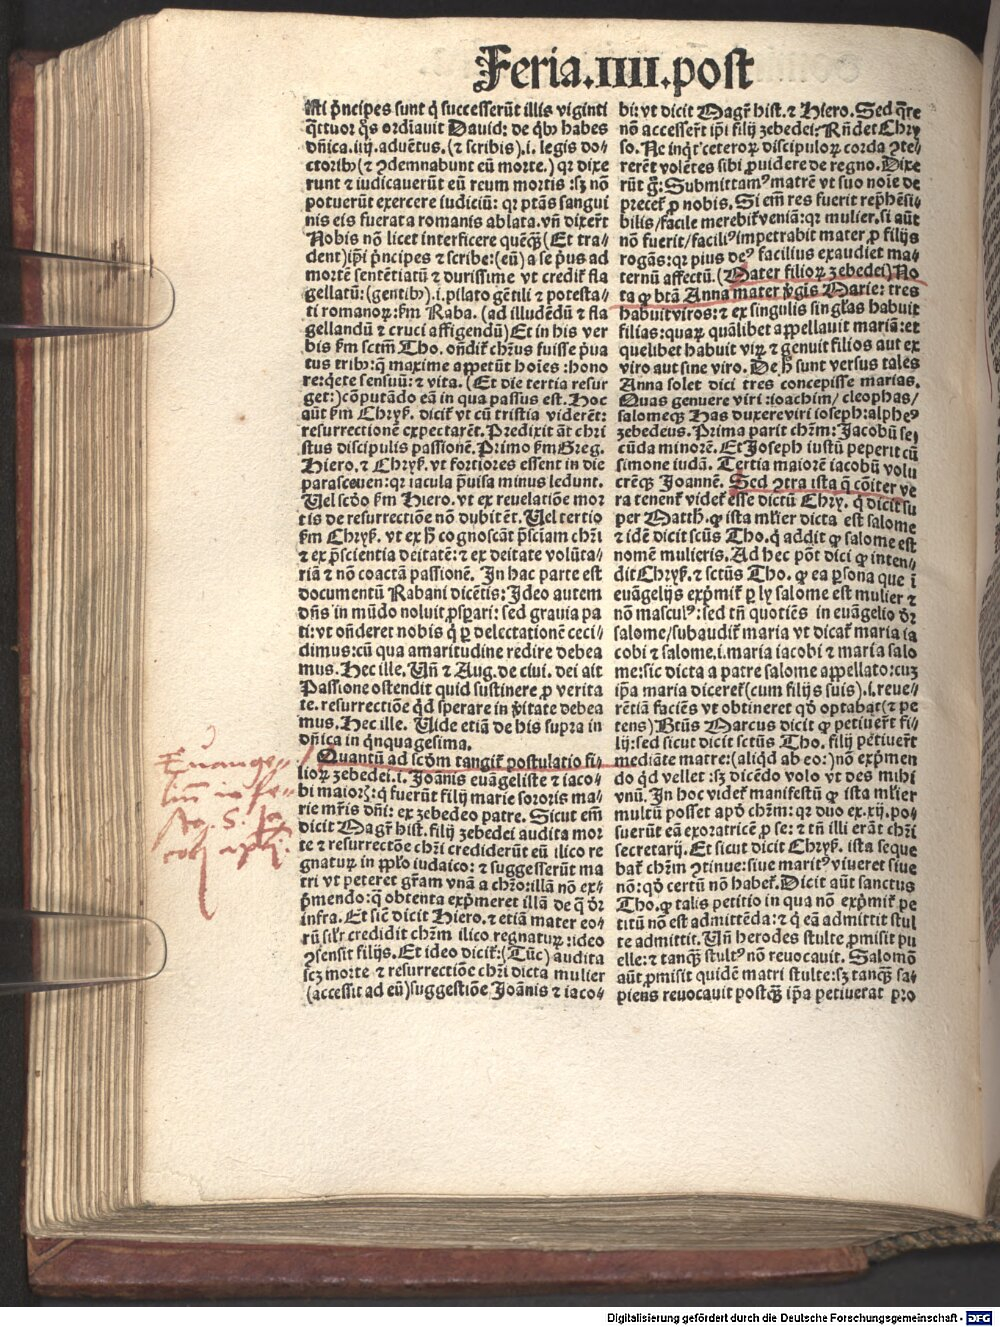 Feria.IIII.post
isti p̄ncipes sunt q̇ successerūt illis viginti
q̄ttuor q̄s ordīauit Dauid: de qͥbꝫ habes
dn̄ica.iiij.aduētus.(⁊ scribis).i. legis do⸗
ctoribꝫ(⁊ ꝯdemnabunt eū morte.) qꝛ dixe
runt ⁊ iudicauerūt eū reum mortis :sꝫ nō
potuerūt exercere iudiciū: qꝛ ptās sangui
nis eis fuerat a romanis ablata.vn̄ dixer̄t
Nobis nō licet interficere quēqꝫ̄(Et tra⸗
dent)ip̄i p̄ncipes ⁊ scribe:(eū) a se p̄us ad
mortē sentētiatū ⁊ durissime vt credit᷑ fla
gellatū:(gentibꝫ).i.pilato gētili ⁊ potesta⸗
ti romanoꝝ: ẜm Raba. (ad illudēdū ⁊ fla
gellandū ⁊ cruci affigendū) Et in his ver
bis ẜm sctm̄ Tho. on̄dit᷑ chr̄us fuisse p̄ua
tus tribꝫ:q̄ maxime appetūt hoīes :hono
re:q̇ete sensuū: ⁊ vita. (Et die tertia resur
get:) cōputādo eā in qua passus est. Hoc
aūt ẜm Chryẜ. dicit᷑ vt cū tristia viderēt:
resurrectionē expectarēt. Predixit āt chri
stus discipulis passionē. Primo ẜm Greg.
Hiero.⁊ Chryẜ. vt fortiores essent in die
parasceuen: qꝛ iacula p̄uisa minus ledunt.
Uel scd̄o ẜm Hiero. vt ex reuelatiōe mor
tis de resurrectiōe nō dubitēt. Uel tertio
ẜm Chryẜ. vt ex h̄ cognoscāt p̄sciam chr̄i
⁊ ex p̄scientia deitatē: ⁊ ex deitate volūta⸗
riā ⁊ nō coactā passionē. In hac parte est
documentū Rabani dicētis: Ideo autem
dn̄s in mūdo noluit ꝓsꝑari: sed grauia pa
ti: vt on̄deret nobis q̇ ꝑ delectationē ceci⸗
dimus: cū qua amaritudine redire debea
mus. Hec ille. Un̄ ⁊ Aug. de ciui. dei ait
Passione ostendit quid sustinere ꝓ verita
te. resurrectiōe qd̄ sperare in p̄itate debea
mus. Hec ille. Uide etiā de his supra in
dn̄ica in q̇nquagesima.
Quantū ad scd̄m tangit᷑ postulatio fi⸗
lioꝝ zebedei.i. Joānis euāgeliste ⁊ iaco⸗
bi maioꝝ: q̇ fuerūt filij marie sororis ma⸗
rie mr̄is dn̄i: ex zebedeo patre. Sicut em̄
dicit Magr̄ hist. filij zebedei audita mor
te ⁊ resurrectōe chr̄i crediderūt eū ilico re
gnaturꝝ in pplo iudaico: ⁊ suggesserūt ma
tri vt peteret gr̄am vnā a chr̄o:illā nō ex⸗
p̄mendo: q̄ obtenta exp̄meret illā de q̄ dr̄
infra. Et sic dicit Hiero. ⁊ etiā mater eo⸗
rū sil̄r credidit chr̄m ilico regnaturꝝ :ideo
ꝯsensit filijs. Et ideo dicit᷑:(Tūc) audita
scꝫ morte ⁊ resurrectiōe chr̄i dicta mulier
(accessit ad eū)suggestiōe Joānis ⁊ iaco⸗
bi: vt dicit Magr̄ hist. ⁊ Hiero. Sed q̄re
nō accesser̄t ip̄i filij zebedei: Rn̄det Chry
so. Ne inq̇t ceteroꝝ discipuloꝝ corda ꝯte⸗
rerēt volētes sibi ꝓuidere de regno. Dixe
rūt g̊: Submittamꝰ matrē vt suo noīe de
precet᷑ ꝓ nobis. Si em̄ res fuerit rep̄hēsi⸗
bilis/facile merebit᷑ veniā: qꝛ mulier. si aūt
nō fuerit/faciliꝰ impetrabit mater ꝓ filijs
rogās: qꝛ pius deꝰ facilius exaudiet ma⸗
ternū affectū. (Mater filioꝝ zebedei) No
ta ꝙ btā Anna mater p̄gis Marie: tres
habuit viros: ⁊ ex singulis singl̄as habuit
filias: quaꝝ quālibet appellauit mariā: et
quelibet habuit virꝝ ⁊ genuit filios aut ex
viro aut sine viro. De h̄ sunt versus tales
Anna solet dici tres concepisse marias.
Quas genuere viri: ioachim/ cleophas/
salomeqꝫ Has duxere viri ioseph: alpheꝰ
zebedeus. Prima parit chr̄m: Jacobū se⸗
cūda minorē. Et Joseph iustū peperit cū
simone iudā. Tertia maiorē iacobū volu
crēqꝫ Joannē. Sed ꝯtra ista q̄ cōiter ve
ra tenent᷑ videt᷑ esse dictū Chry. q̇ dicit su
per Matth. ꝙ ista ml̄ier dicta est salome
⁊ idē dicit scūs Tho. q̇ addit ꝙ salome est
nomē mulieris. Ad hec pōt dici ꝙ inten⸗
dit Chryẜ. ⁊ sctūs Tho. ꝙ ea ꝑsona que ī
euāgelijs exp̄mit᷑ ꝑ ly salome est mulier ⁊
nō masculꝰ: sed tn̄ quotiēs in euāgelio dr̄
salome/subaudit᷑ maria vt dicat᷑ maria ia
cobi ⁊ salome.i.maria iacobi ⁊ maria salo
me:sic dicta a patre salome appellato: cuꝫ
ip̄a maria diceret᷑ (cum filijs suis).i.reue⸗
rētiā faciēs vt obtineret qd̄ optabat(⁊ pe
tens) Btūs Marcus dicit ꝙ petiuer̄t fi⸗
lij:sed sicut dicit sctūs Tho. filij petiuer̄t
mediāte matre: (aliqd̄ ab eo:) nō exp̄men
do qd̄ vellet :sꝫ dicēdo volo vt des mihi
vnū. In hoc videt᷑ manifestū ꝙ ista ml̄ier
multū posset apd̄ chr̄m: qꝛ duo ex.xij.po⸗
suerūt eā exoratricē ꝓ se: ⁊ tn̄ illi erāt chr̄i
secretarij. Et sicut dicit Chryẜ. ista seque
bat᷑ chr̄m ꝯtinue: siue maritꝰ viueret siue
nō: qd̄ certū nō habet᷑. Dicit aūt sanctus
Tho. ꝙ talis petitio in qua nō exp̄mit᷑ pe
titū nō est admittēda: ⁊ q̇ eā admittit stul
te admittit. Un̄ herodes stulte ꝓmisit pu
elle: ⁊ tanqꝫ̄ stultꝰ nō reuocauit. Salomō
aūt ꝓmisit quidē matri stulte: sꝫ tanqꝫ̄ sa⸗
piens reuocauit postqꝫ̄ ip̄a petiuerat pro
Euange⸗
lium in fe⸗
sto . S. Ja
cobi apli.
Digitalisierung gefördert durch die Deutsche Forschungsgemeinschaft - DFG